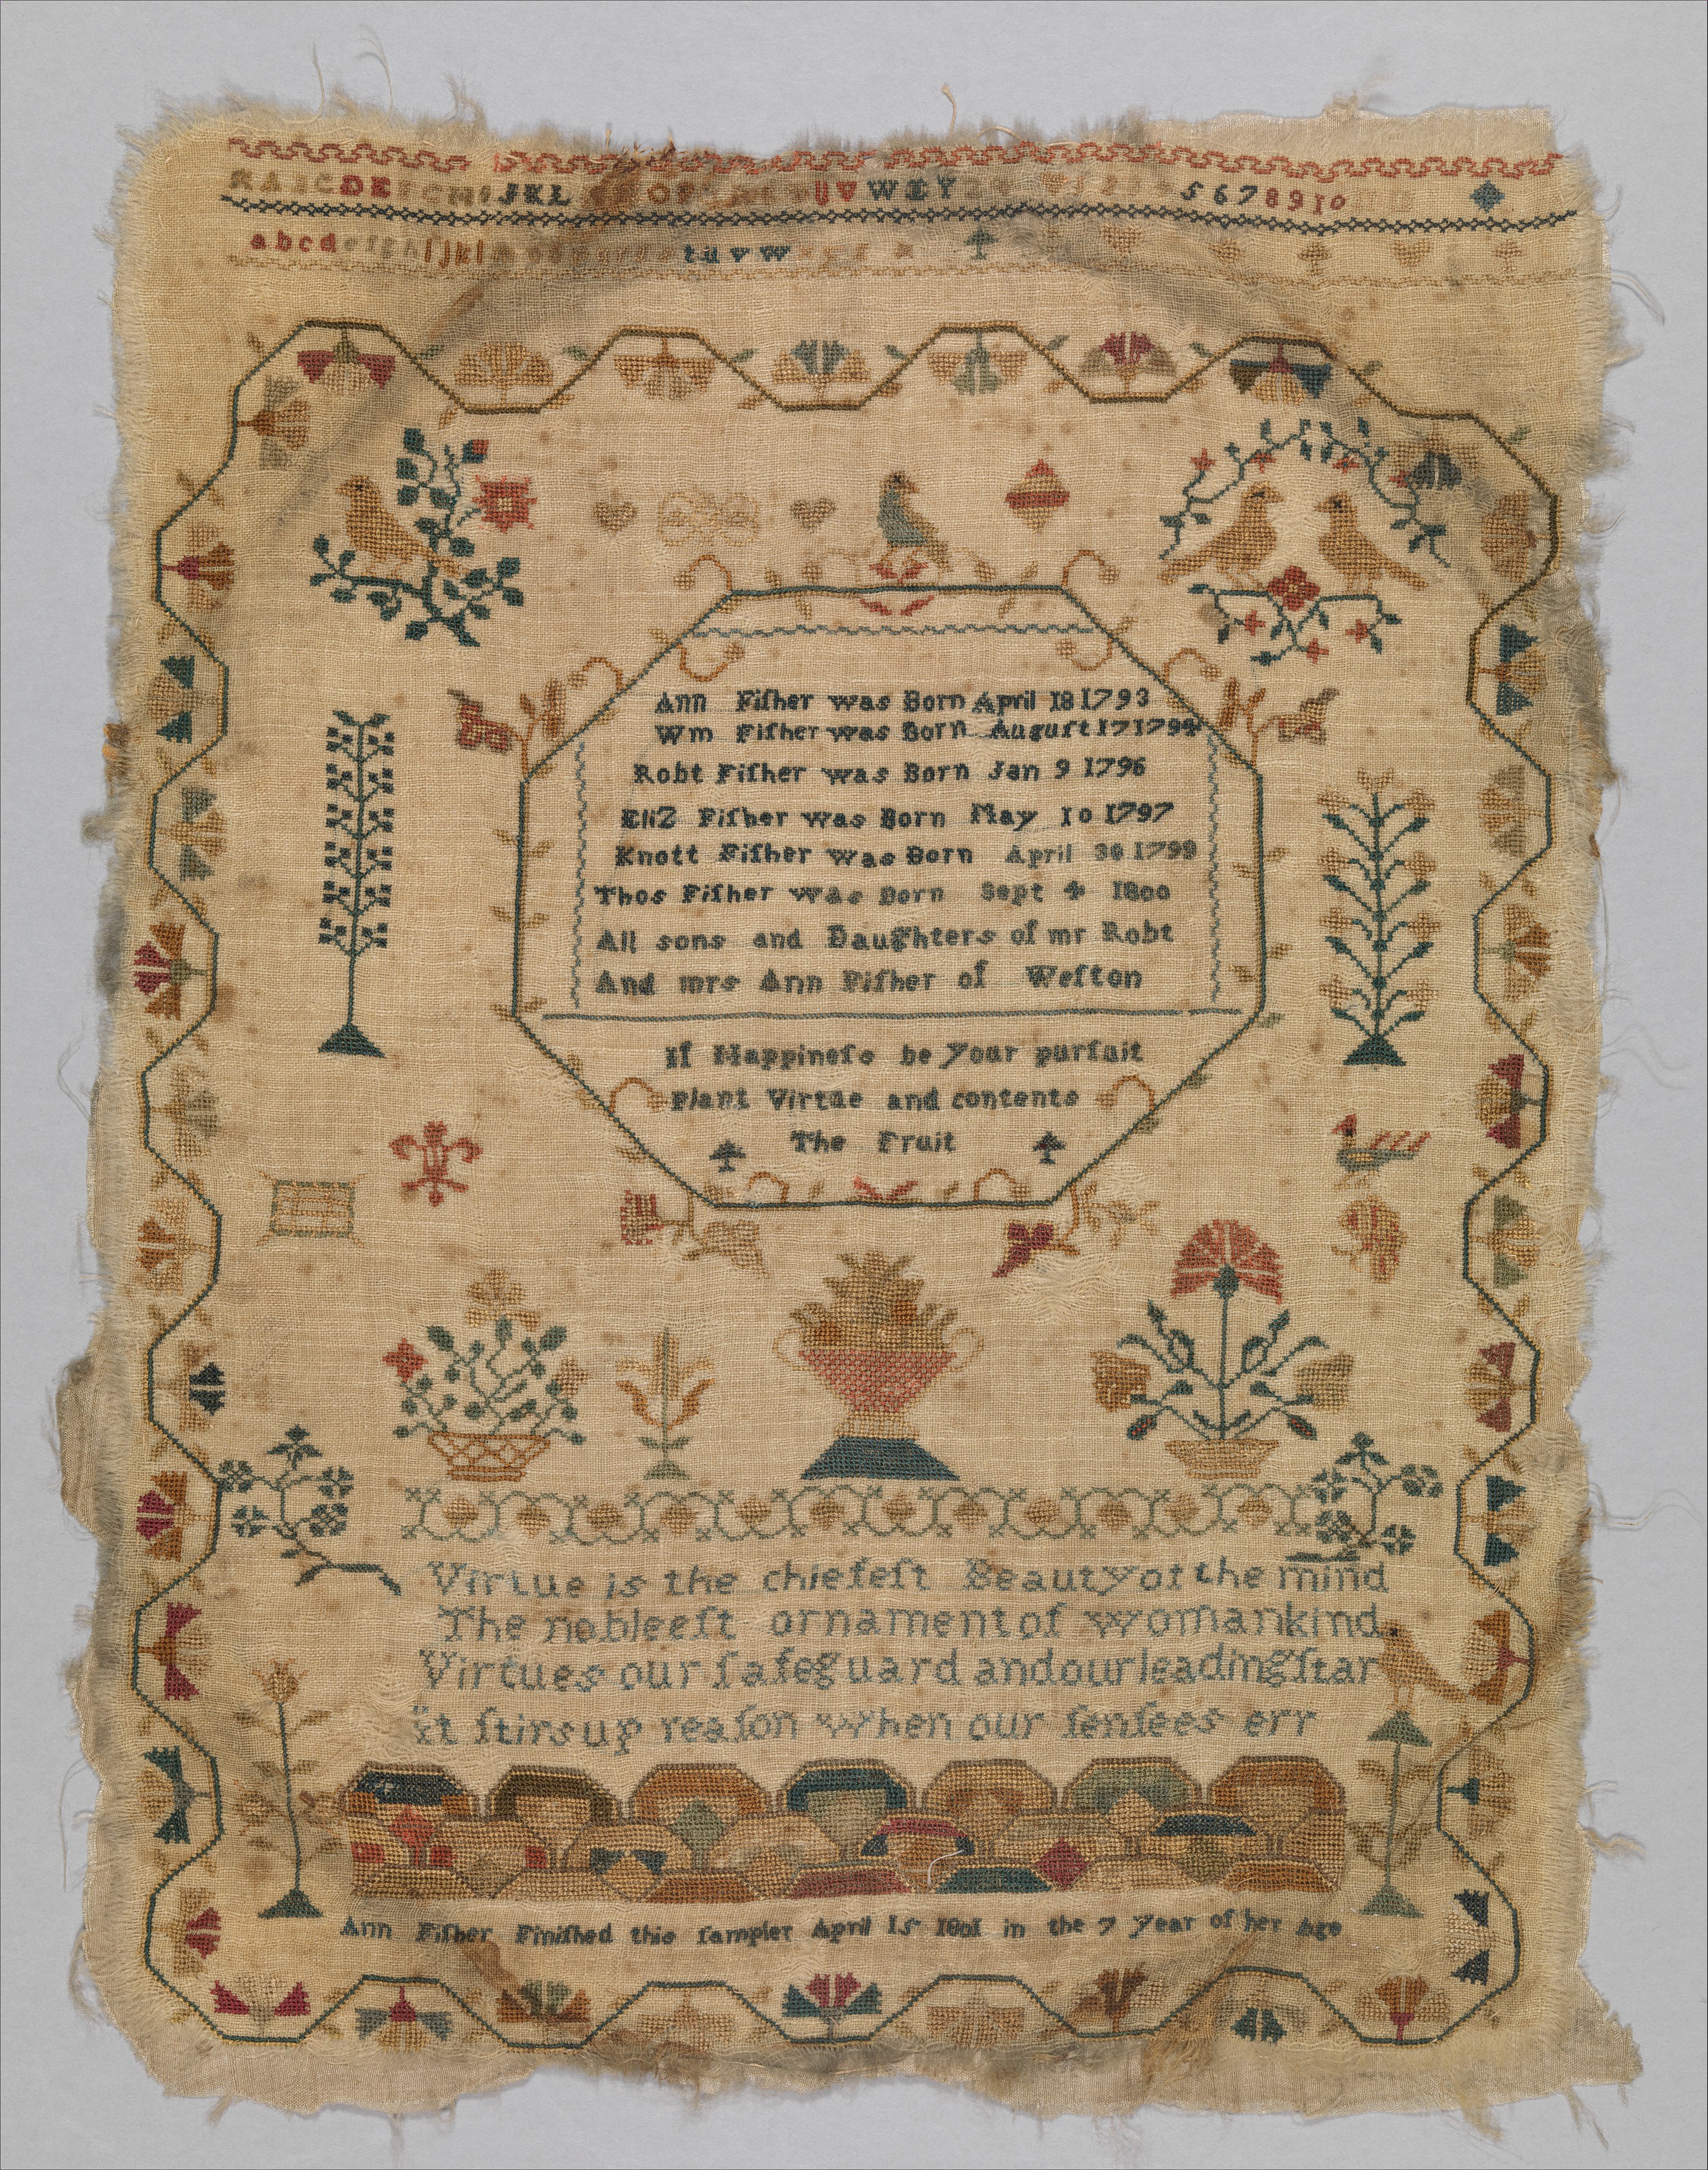 A B C D E F G H I J K L O P U V W X Y 5 6 7 8 9 10
a b c d e f g h i j k l t u v w
Ann Fiſher was Born April 18 1793
Wm Fiſher was Born Auguſt 17 1794
Robt Fiſher was Born Jan 9 1796
EliZ Fiſher was Born May 10 1797
Knott Fiſher was Born April 30 1799
Thos Fiſher was Born Sept 4 1800
All sons and Daughters of mr Robt
And mrs Ann Fiſher of Weſton
If Happineſs be Your purſuit
Plant Virtue and contents
The Fruit
Virtue is the chiefeſt Beauty of the mind
The nobleeſt ornament of womankind
Virtues our ſafeguard and our leading ſtar
it ſtirs up reaſon when our ſenſees err
Ann Fiſher Finiſhed this ſampler April 15 1801 in the 7 Year of her Age